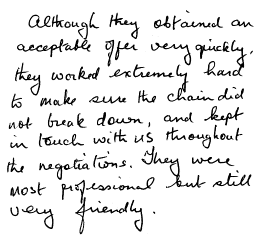 Although they obtained an
acceptable offer very quickly,
they worked extremely hard
to make sure the chain did
not break down, and kept
in touch with us throughout
the negotiations. They were
most professional but still
very friendly.